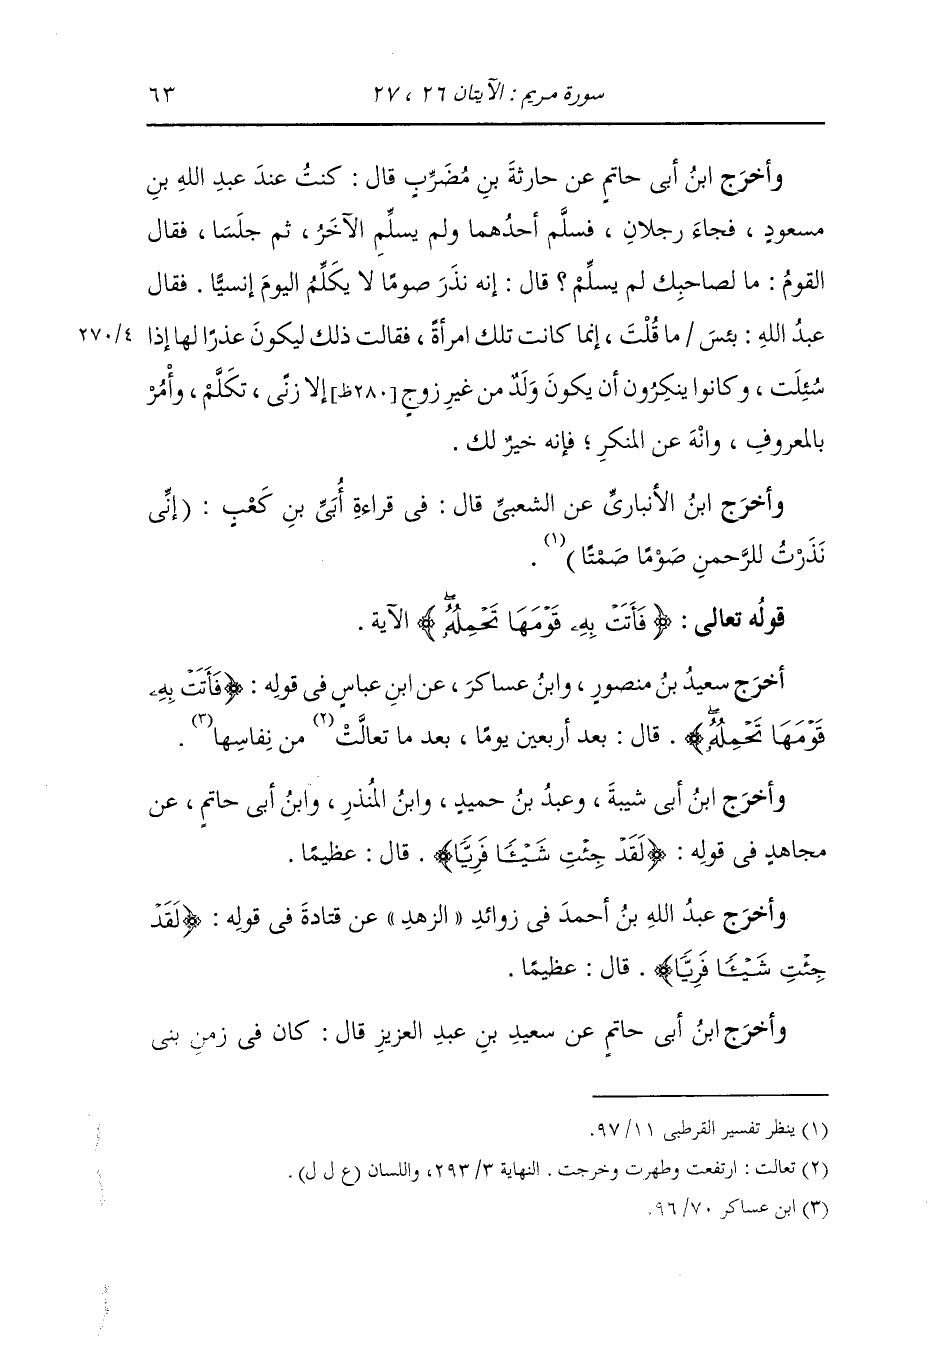 سورة مريم : الآيتان ٢٦ ، ٢٧ ٦٣
وأخرَج ابنُ أبى حاتمٍ عن حارثةَ بنِ مُضَرِّبٍ قال : كنتُ عندَ عبدِ اللهِ بنِ
مسعودٍ ، فجاءَ رجلانِ ، فسلَّم أحدُهما ولم يسلِّمِ الآخَرُ ، ثم جلَسَا ، فقال
القومُ : ما لصاحبِك لم يسلِّمْ ؟ قال : إنه نذَر صومًا لا يكَلِّمُ اليومَ إنسيًّا . فقال
عبدُ اللهِ : بئسَ / ما قُلْتَ ، إنما كانت تلك امرأةً ، فقالت ذلك ليكونَ عذرًا لها إذا ٢٧٠/٤
سُئِلَت ، وكانوا ينكِرُون أن يكونَ وَلَدٌ من غيرِ زوجٍ [٢٨٠ظ] إلا زنًى ، تكَلَّمْ ، وأْمُرْ
بالمعروفِ ، وانْهَ عن المنكرِ ؛ فإنه خيرٌ لك .
وأخرَج ابنُ الأنبارىِّ عن الشعبىِّ قال : فى قراءةِ أُبَىِّ بنِ كَعْبٍ : (إنِّى
نَذَرْتُ للرَّحمنِ صَوْمًا صَمْتًا)(١) .
قولُه تعالى : ﴿ فَأَتَتْ بِهِۦ قَوْمَهَا تَحْمِلُهُۥۖ ﴾ الآية .
أخرَج سعيدُ بنُ منصورٍ ، وابنُ عساكرَ ، عن ابنِ عباسٍ فى قولِه : ﴿فَأَتَتْ بِهِۦ
قَوْمَهَا تَحْمِلُهُۥۖ﴾ . قال : بعد أربعين يومًا ، بعد ما تعالَّتْ(٢) من نِفاسِها(٣) .
وأخرَج ابنُ أبى شيبةَ ، وعبدُ بنُ حميدٍ ، وابنُ المُنذرِ ، وابنُ أبى حاتمٍ ، عن
مجاهدٍ فى قولِه : ﴿لَقَدْ جِئْتِ شَيْـًٔا فَرِيًّا﴾ . قال : عظيمًا .
وأخرَج عبدُ اللهِ بنُ أحمدَ فى زوائدِ « الزهدِ » عن قتادةَ فى قولِه : ﴿لَقَدْ
جِئْتِ شَيْـًٔا فَرِيًّا﴾ . قال : عظيمًا .
وأخرَج ابنُ أبى حاتمٍ عن سعيدِ بنِ عبدِ العزيزِ قال : كان فى زمنِ بنى
(١) ينظر تفسير القرطبى ١١/ ٩٧.
(٢) تعالت : ارتفعت وطهرت وخرجت . النهاية ٣/ ٢٩٣، واللسان (ع ل ل) .
(٣) ابن عساكر ٧٠/ ٩٦.